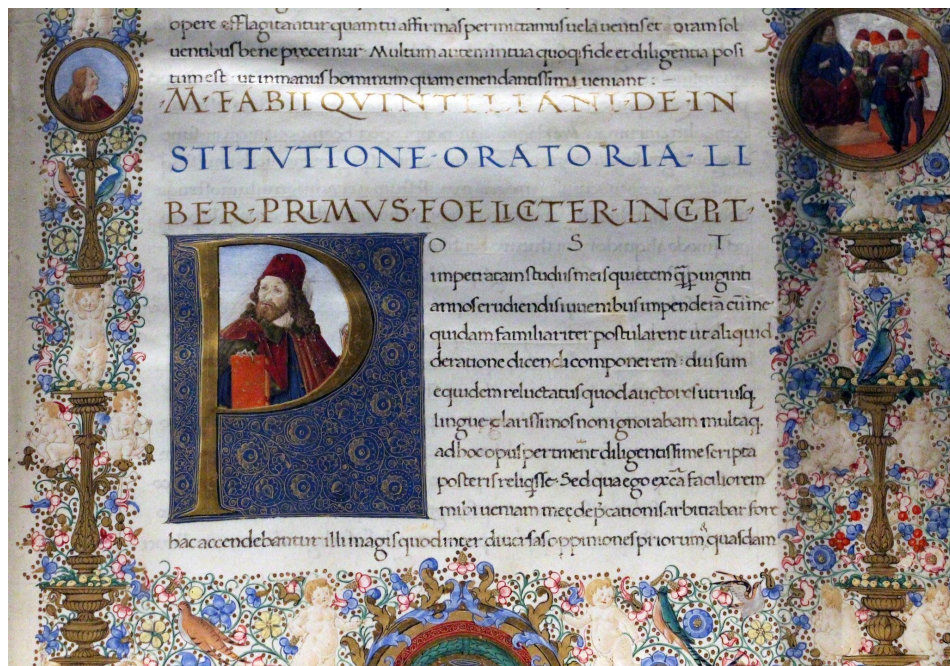 opere efflagitantur quam tu affirmas permittamus uela uentis et oram sol
uentibus bene precemur. Multum autem in tua quoq; fide et diligentia posi
tum est: ut in manus hominum quam emendatissima ueniant:
·M·FABII QVINTILIANI·DE·IN
STITVTIONE·ORATORIA·LI
BER·PRIMVS·FOELICITER INCIPIT·
POST
impetratam studiis meis quietem q̄ p̱ uiginti
annos erudiendis iuuenibus impenderā cū me
quidam familiariter postularent ut aliquid
de ratione dicendi componerem· diu sum
equidem reluctatus quod auctores utriusq,
linguę clarissimos non ignorabam multa q;
ad hoc opus pertinent diligentissime scripta
posteris reliq̇sse· Sed qua ego ex cā faciliorem
mihi ueniam meę dep̄cationis arbitrabar fore
hac accendebantur illi magis quod inter diuersas oppiniones priorum quasdam